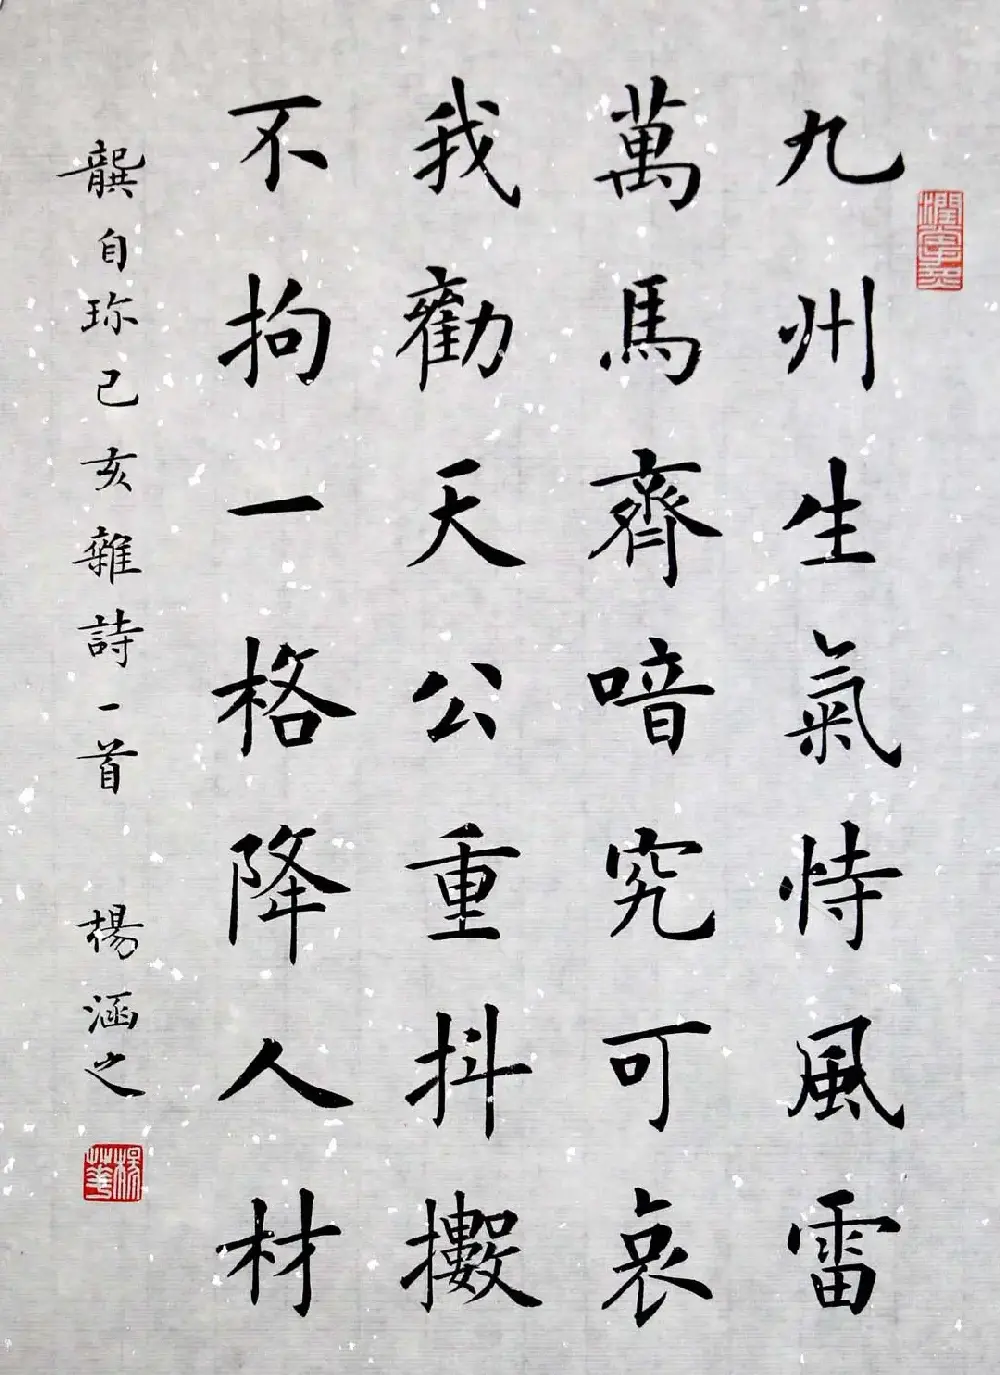 九州生氣恃風雷
萬馬齊喑究可哀
我勸天公重抖擻
不拘一格降人材
龔自珍己亥雜詩一首 楊涵之